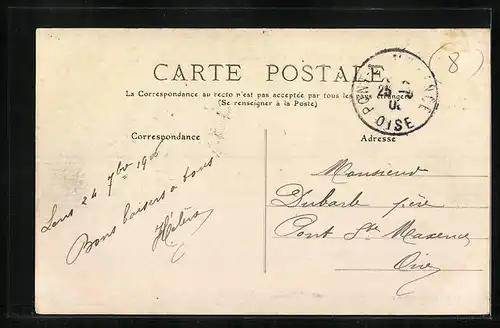 CARTE POSTALE
La Correspondance au recto n'est pas acceptée par tous les pays étrangers
(Se renseigner à la Poste)
Correspondance
Adresse
24 7bre 190
Bons baisers à tous
Monsieur
Dubarle père
Pont Ste Maxence
Oise
OISE
8